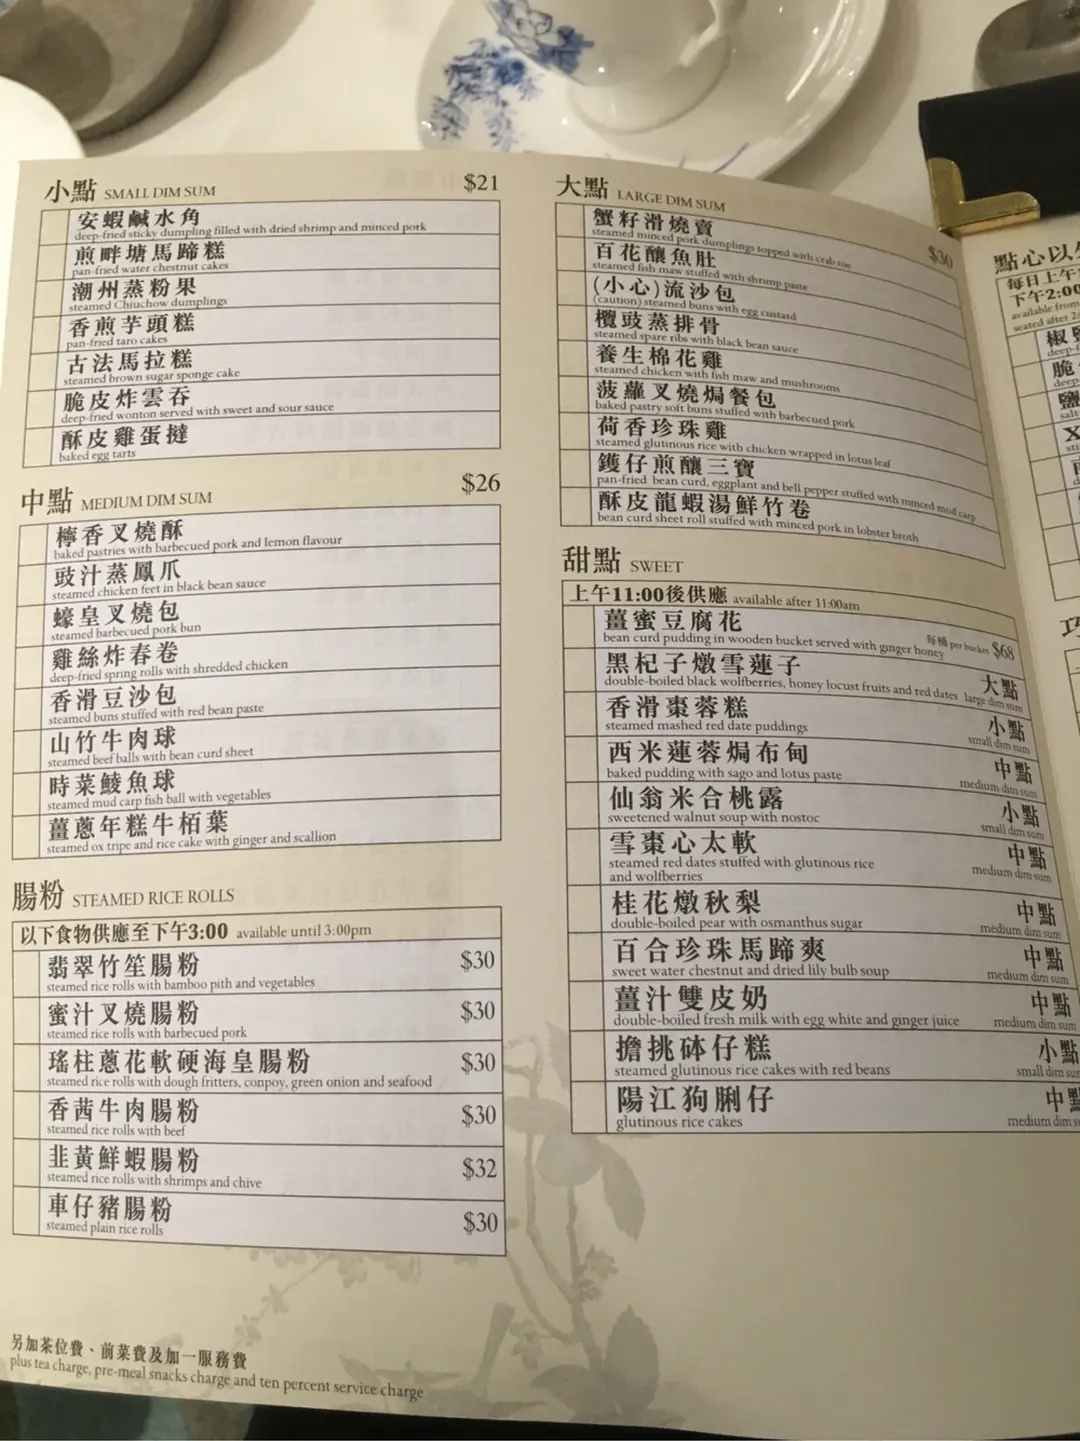 小點 SMALL DIM SUM $21
安蝦鹹水角
deep-fried sticky dumpling filled with dried shrimp and minced pork
煎畔塘馬蹄糕
pan-fried water chestnut cakes
潮州蒸粉果
steamed Chiuchow dumplings
香煎芋頭糕
pan-fried taro cakes
古法馬拉糕
steamed brown sugar sponge cake
脆皮炸雲吞
deep-fried wonton served with sweet and sour sauce
酥皮雞蛋撻
baked egg tarts
中點 MEDIUM DIM SUM $26
檸香叉燒酥
baked pastries with barbecued pork and lemon flavour
豉汁蒸鳳爪
steamed chicken feet in black bean sauce
蠔皇叉燒包
steamed barbecued pork bun
雞絲炸春卷
deep-fried spring rolls with shredded chicken
香滑豆沙包
steamed buns stuffed with red bean paste
山竹牛肉球
steamed beef balls with bean curd sheet
時菜鯪魚球
steamed mud carp fish ball with vegetables
薑蔥年糕牛栢葉
steamed ox tripe and rice cake with ginger and scallion
腸粉 STEAMED RICE ROLLS
以下食物供應至下午3:00 available until 3:00pm
翡翠竹笙腸粉 $30
steamed rice rolls with bamboo pith and vegetables
蜜汁叉燒腸粉 $30
steamed rice rolls with barbecued pork
瑤柱蔥花軟硬海皇腸粉 $30
steamed rice rolls with dough fritters, conpoy, green onion and seafood
香茜牛肉腸粉 $30
steamed rice rolls with beef
韭黃鮮蝦腸粉 $32
steamed rice rolls with shrimps and chive
車仔豬腸粉 $30
steamed plain rice rolls
另加茶位費、前菜費及加一服務費
plus tea charge, pre-meal snacks charge and ten percent service charge
大點 LARGE DIM SUM $30
蟹籽滑燒賣
steamed minced pork dumplings topped with crab roe
百花釀魚肚
steamed fish maw stuffed with shrimp paste
(小心)流沙包
(caution) steamed buns with egg custard
欖豉蒸排骨
steamed spare ribs with black bean sauce
養生棉花雞
steamed chicken with fish maw and mushrooms
菠蘿叉燒焗餐包
baked pastry soft buns stuffed with barbecued pork
荷香珍珠雞
steamed glutinous rice with chicken wrapped in lotus leaf
鑊仔煎釀三寶
pan-fried bean curd, eggplant and bell pepper stuffed with minced mud carp
酥皮龍蝦湯鮮竹卷
bean curd sheet roll stuffed with minced pork in lobster broth
甜點 SWEET
上午11:00後供應 available after 11:00am
薑蜜豆腐花 每桶 per bucket $68
bean curd pudding in wooden bucket served with ginger honey
黑杞子燉雪蓮子 大點
double-boiled black wolfberries, honey locust fruits and red dates large dim sum
香滑棗蓉糕 小點
steamed mashed red date puddings small dim sum
西米蓮蓉焗布甸 中點
baked pudding with sago and lotus paste medium dim sum
仙翁米合桃露 小點
sweetened walnut soup with nostoc small dim sum
雪棗心太軟 中點
steamed red dates stuffed with glutinous rice medium dim sum
and wolfberries
桂花燉秋梨 中點
double-boiled pear with osmanthus sugar medium dim sum
百合珍珠馬蹄爽 中點
sweet water chestnut and dried lily bulb soup medium dim sum
薑汁雙皮奶 中點
double-boiled fresh milk with egg white and ginger juice medium dim sum
擔挑砵仔糕 小點
steamed glutinous rice cakes with red beans small dim
陽江狗脷仔 中
glutinous rice cakes medium dim
點心以
每日上午
下午2:00
available from
seated after
椒
脆
鹽
X
巧